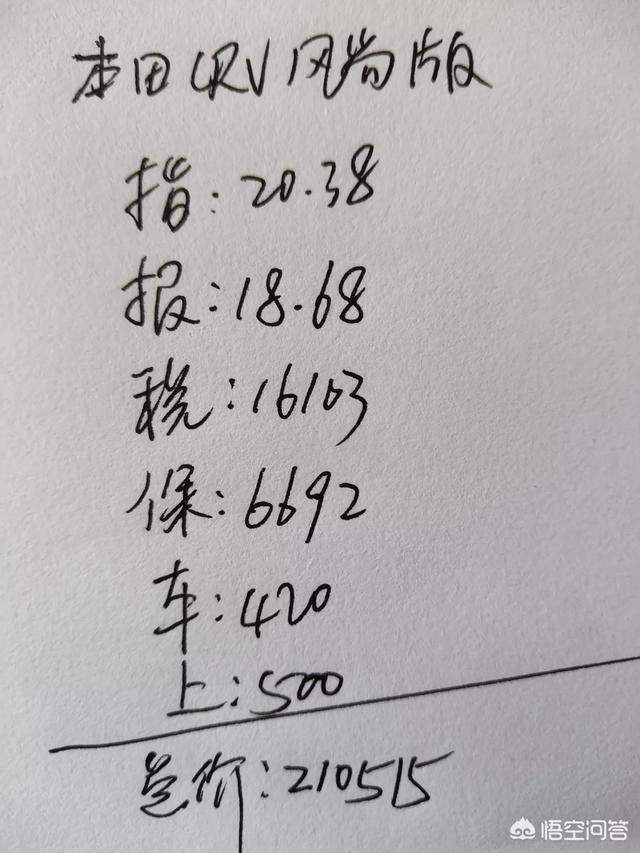 本田CRV风尚版
指:20.38
报:18.68
税:16103
保:6692
车:420
上:500
总价:210515
悟空问答